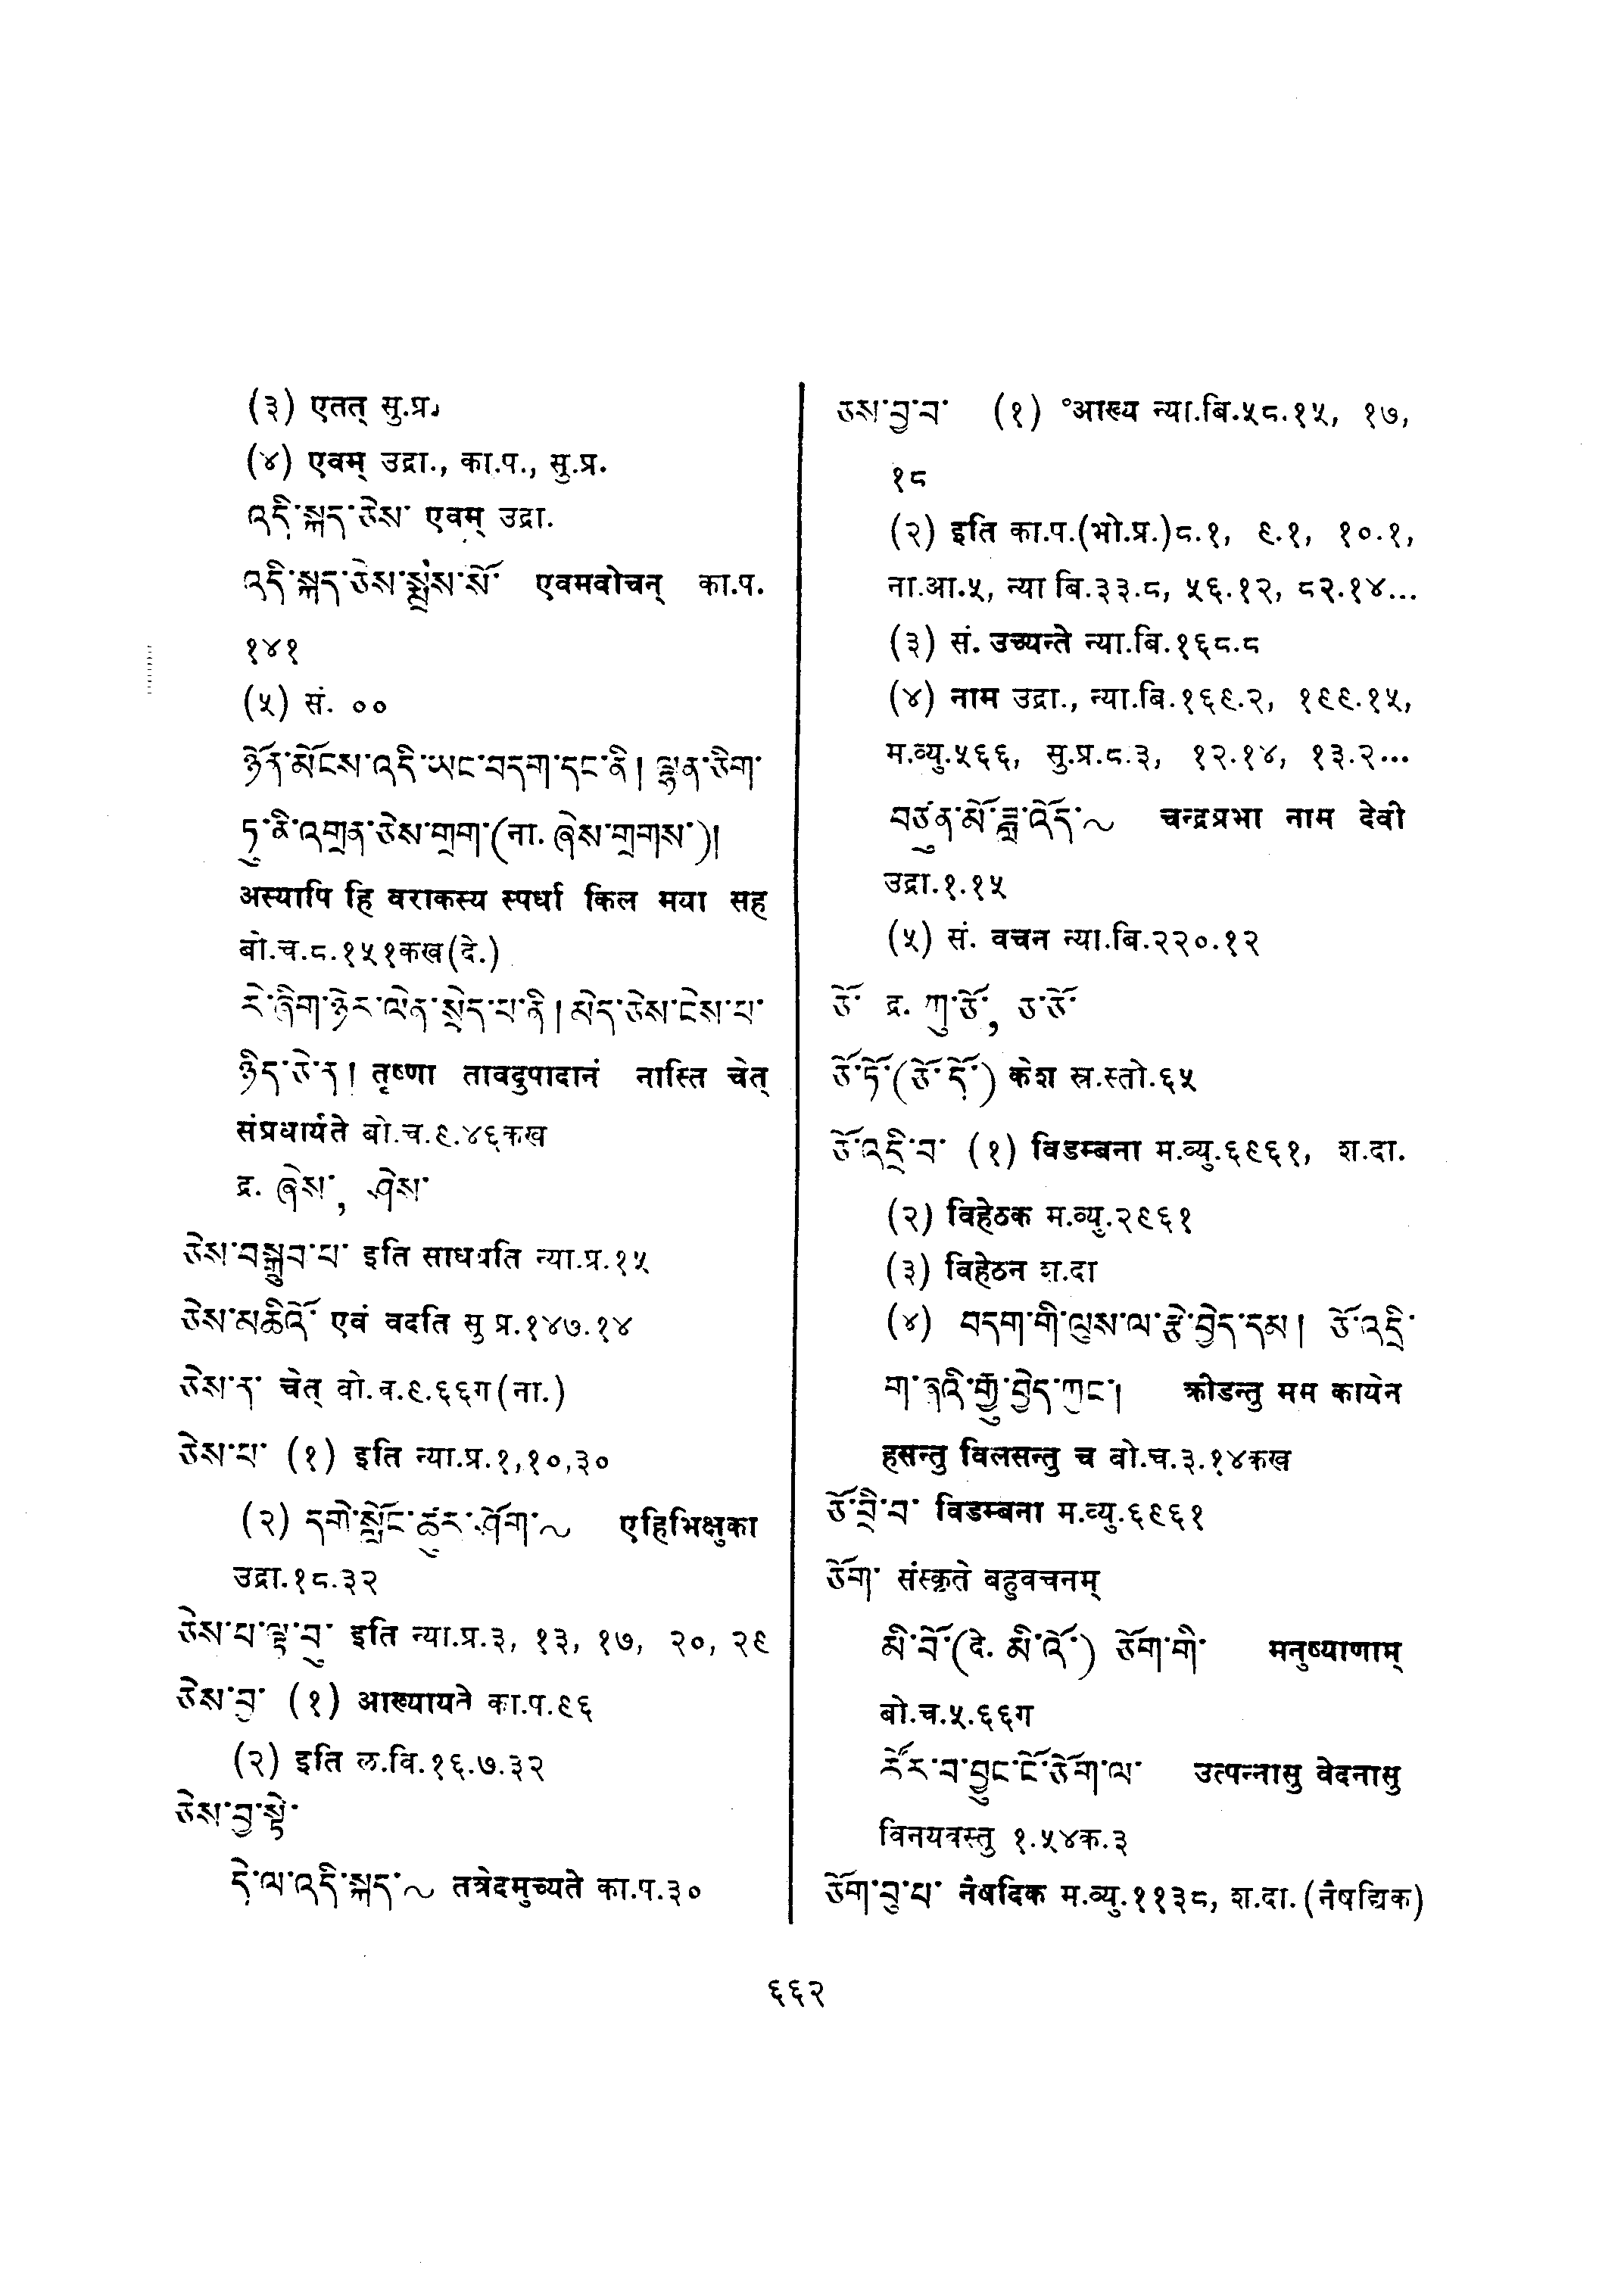 (३) एतत् सु.प्र.
(४) एवम् उद्रा., का.प., सु.प्र.
འདི་སྐད་ཅེས་ एवम् उद्रा.
འདི་སྐད་ཅེས་སྨྲས་སོ་ एवमवोचन् का.प.
१४१
(५) सं. ००
ཉོན་མོངས་འདི་ཡང་བདག་དང་ནི། ལྷན་ཅིག་
ཏུ་ནི་འགྲན་ཅེས་གྲག་(ना. ཞེས་གྲགས་)།
अस्यापि हि वराकस्य स्पर्धा किल मया सह
बो.च.८.१५१कख(दे.)
རེ་ཞིག་ཉེར་ལེན་སྲེད་པ་ནི། མེད་ཅེས་ངེས་པ་
ཉིད་ཅེ་ན། तृष्णा तावदुपादानं नास्ति चेत्
संप्रधार्यते बो.च.९.४६कख
द्र. ཞེས་, ཤེས་
ཅེས་བསྒྲུབ་པ་ इति साधयति न्या.प्र.१५
ཅེས་མཆིའོ་ एवं वदति सु प्र.१४७.१४
ཅེས་ན་ चेत् बो.च.९.६६ग(ना.)
ཅེས་པ་ (१) इति न्या.प्र.१,१०,३०
(२) དགེ་སློང་ཚུར་ཤོག་~ एहिभिक्षुका
उद्रा.१८.३२
ཅེས་པ་ལྟ་བུ་ इति न्या.प्र.३, १३, १७, २०, २९
ཅེས་བྱ་ (१) आख्यायते का.प.९६
(२) इति ल.वि.१६.७.३२
ཅེས་བྱ་སྟེ་
དེ་ལ་འདི་སྐད་~ तत्रेदमुच्यते का.प.३०
ཅེས་བྱ་བ་ (१) °आख्य न्या.बि.५८.१५, १७,
१८
(२) इति का.प.(भो.प्र.)८.१, ९.१, १०.१,
ना.आ.५, न्या बि.३३.८, ५६.१२, ८२.१४...
(३) सं. उच्यन्ते न्या.बि.१६८.८
(४) नाम उद्रा., न्या.बि.१६९.२, १९९.१५,
म.व्यु.५६६, सु.प्र.८.३, १२.१४, १३.२...
བཙུན་མོ་ཟླ་འོད་~ चन्द्रप्रभा नाम देवी
उद्रा.१.१५
(५) सं. वचन न्या.बि.२२०.१२
ཅོ་ द्र. ཀུ་ཅོ་, ཅ་ཅོ་
ཅོ་ཏོ་(ཅོ་དོ་) केश स्र.स्तो.६५
ཅོ་འདྲི་བ་ (१) विडम्बना म.व्यु.६९६१, श.दा.
(२) विहेठक म.व्यु.२९६१
(३) विहेठन श.दा
(४) བདག་གི་ལུས་ལ་རྩེ་བྱེད་དམ། ཅོ་འདྲི་
ག་ཞའི་རྒྱུ་བྱེད་ཀྱང་། क्रीडन्तु मम कायेन
हसन्तु विलसन्तु च बो.च.३.१४कख
ཅོ་བྲི་བ་ विडम्बना म.व्यु.६९६१
ཅོག་ संस्कृते बहुवचनम्
མི་བོ་(दे. མི་འོ་) ཅོག་གི་ मनुष्याणाम्
बो.च.५.६६ग
ཚོར་བ་བྱུང་ངོ་ཅོག་ལ་ उत्पन्नासु वेदनासु
विनयवस्तु १.५४क.३
ཅོག་བུ་པ་ नैषदिक म.व्यु.११३८, श.दा.(नैषद्यिक)
६६२